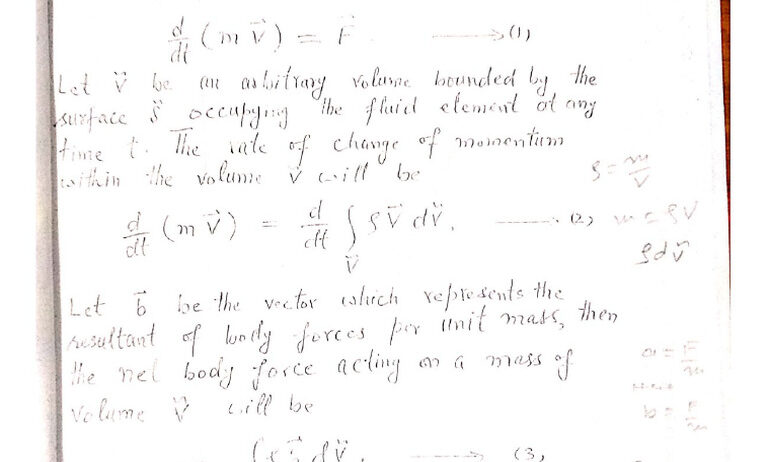 d/dt (m V⃗) = F⃗ ⟶ (1)
Let V̆ be an arbitrary volume bounded by the
surface S̆ occupying the fluid element at any
time t. The rate of change of momentum
within the volume V̆ will be
ρ = m/V
d/dt (m V⃗) = d/dt ∫_V̆ ρ V⃗ dV̆, ⟶ (2)
m = ρV
ρdV̆
Let b⃗ be the vector which represents the
resultant of body forces per unit mass, then
the net body force acting on a mass of
a = F/m
volume V̆ will be
b = F/m
∫ρ b⃗ dV̆, ⟶ (3)